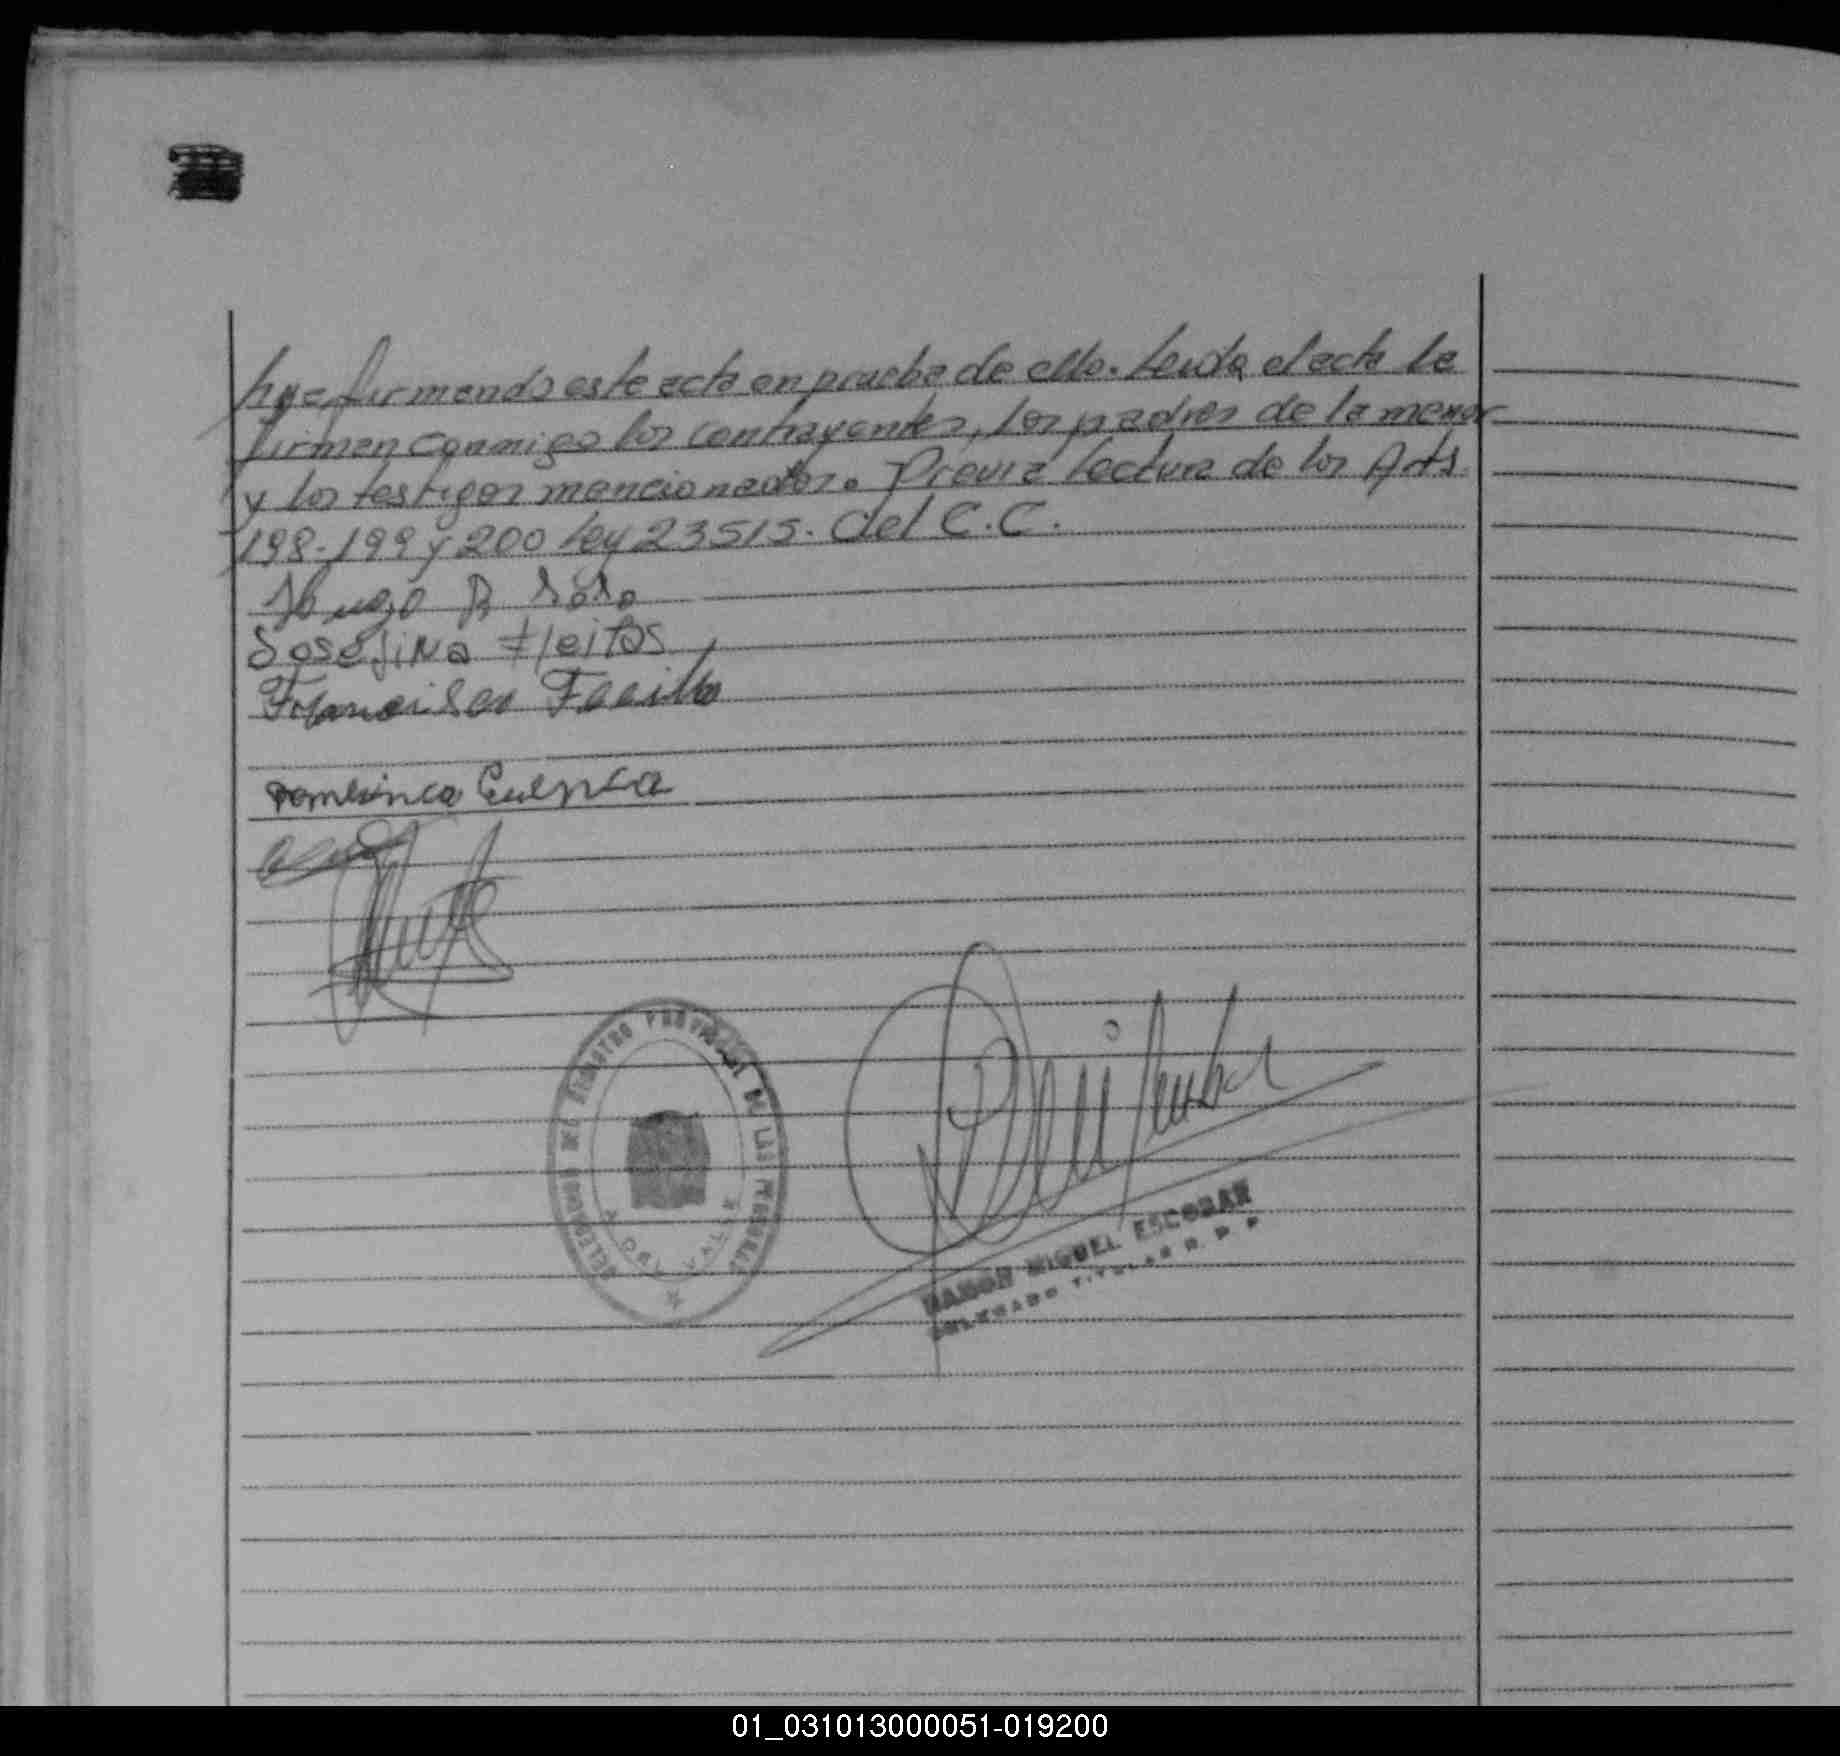 hya firmando este acta en prueba de ello. Leida el acta la
firman conmigo los contrayentes, los padres de la menor
y los testigos mencionados. Previa lectura de los Arts
198-199 y 200 Ley 23515. del C.C.
Hugo R Soto
Josefina Fleitas
Francisco
Cuenca
DELEGADO DEL REGISTRO PROVINCIAL DE LAS PERSONAS
RAMON MIGUEL ESCOBAR
DELEGADO TITULAR R. P. P.
01_031013000051-019200